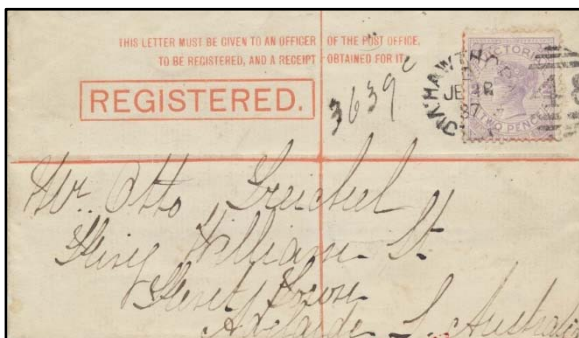 THIS LETTER MUST BE GIVEN TO AN OFFICER OF THE POST OFFICE,
TO BE REGISTERED, AND A RECEIPT OBTAINED FOR IT.
REGISTERED.
3639
VICTORIA
TWO PENCE
HAWTHORN
87
Mr. Otto
King William St
Adelaide S. Australia